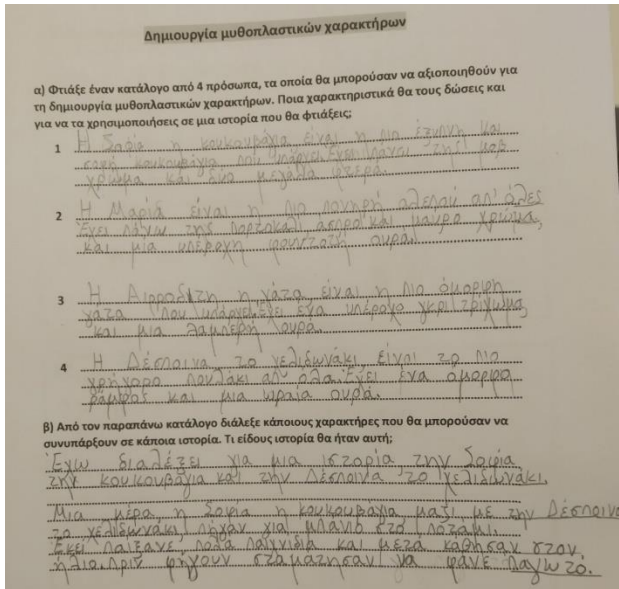 Δημιουργία μυθοπλαστικών χαρακτήρων
α) Φτιάξε έναν κατάλογο από 4 πρόσωπα, τα οποία θα μπορούσαν να αξιοποιηθούν για
τη δημιουργία μυθοπλαστικών χαρακτήρων. Ποια χαρακτηριστικά θα τους δώσεις και
για να τα χρησιμοποιήσεις σε μια ιστορία που θα φτιάξεις;
1 Η Σοφία η κουκουβάγια είναι η πιο έξυπνη και
σοφή κουκουβάγια που υπάρχει. Έχει πάνω της μωβ
χρώμα και δύο μεγάλα φτερά.
2 Η Μαρία είναι η πιο πονηρή αλεπού απ' όλες
Έχει πάνω της πορτοκαλί, άσπρο και μαύρο χρώμα,
και μια υπέροχη φουντωτή ουρά.
3 Η Αφροδίτη η γάτα, είναι η πιο όμορφη
γάτα που υπάρχει, έχει ένα υπέροχο γκρι τρίχωμα,
και μια λαμπερή ουρά.
4 Η Δέσποινα το χελιδωνάκι είναι το πιο
γρήγορο πουλάκι απ' όλα. Έχει ένα όμορφο
ράμφος και μια ωραία ουρά.
β) Από τον παραπάνω κατάλογο διάλεξε κάποιους χαρακτήρες που θα μπορούσαν να
συνυπάρξουν σε κάποια ιστορία. Τι είδους ιστορία θα ήταν αυτή;
Έχω διαλέξει για μια ιστορία την Σοφία
την κουκουβάγια και την Δέσποινα το χελιδωνάκι.
Μια μέρα, η Σοφία η κουκουβάγια μαζί με την Δέσποινα
το χελιδωνάκι, πήγαν για μπάνιο στο ποτάμι.
Εκεί παίξανε πολά παιχνίδια και μετά κάθησαν στον
ήλιο. Πριν φήγουν σταμάτησαν να φάνε παγωτο.